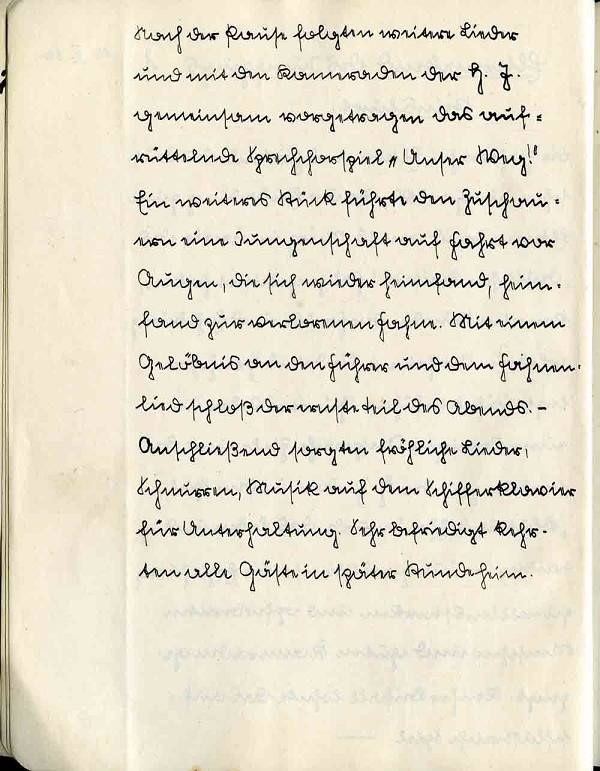 Nach der Pause folgten weitere Lieder
und mit den Kameraden der H. J.
gemeinsam vorgetragen das auf-
rüttelnde Sprechchorspiel „Unser Weg!"
Ein weiteres Stück führte den Zuschau-
ern eine Jungenschaft auf Fahrt vor
Augen, die sich wieder heimfand, heim-
fand zur verlorenen Fahne. Mit einem
Gelöbnis an den Führer und dem Fahnen-
lied schloß der erste Teil des Abends. –
Anschließend sorgten fröhliche Lieder,
Schnurren, Musik auf dem Schifferklavier
für Unterhaltung. Sehr befriedigt kehr-
ten alle Gäste in später Stunde heim.